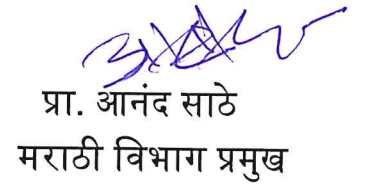 प्रा. आनंद साठे
मराठी विभाग प्रमुख